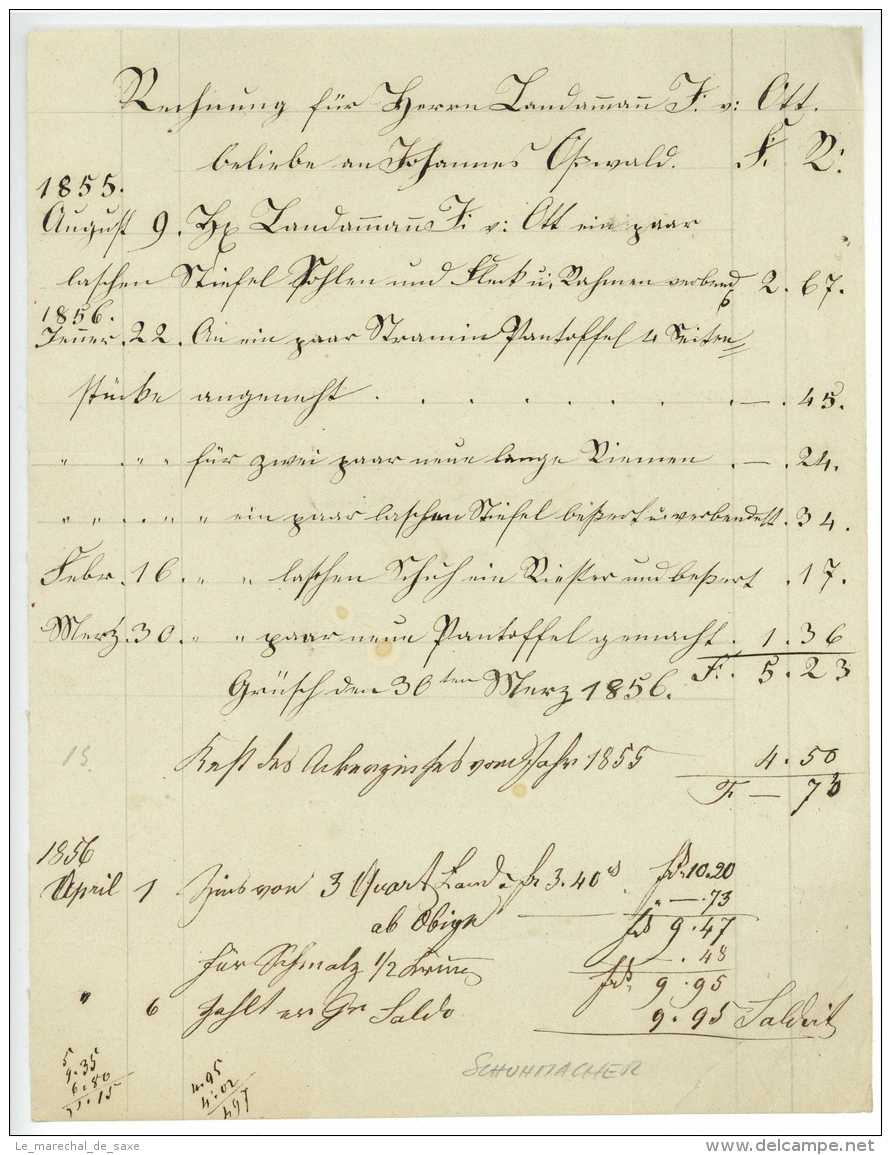 Rechnung für Herrn Landammann F: v: Ott.
beliebe an Johannes Oswald. Fr. R:
1855.
August 9. Hr Landammann F: v: Ott ein paar
laschen Stiefel Sohlen und Fleck u: Rahmen verbend 2.67.
1856.
Jenner. 22. An ein paar Stramin Pantoffel 4 Seiten=
stücke angeneht . . . . . . . . — . 45.
" . " " für zwei paar neue lange Riemen . — . 24.
" " . . " " " ein paar laschen Stiefel beßert u: verbendelt . 34.
Febr. 16. " " laschen Schuh ein Riester und beßert . 17.
Merz. 30. " " paar neue Pantoffel gemacht . 1.36
Fr. 5.23
Grüsch den 30ten Merz 1856.
15 Rest des Ackerzinses vom Jahr 1855 4.50
Fr. — 73
1856
April 1 Zins von 3 Quart Land à fr 3.40 frs 10.20
ab Obige " — .73
frs 9.47
Für Schmalz 1/2 — . 48
frs. 9.95
" 6 Zahlt er Saldo 9.95 Saldirt
9.35
6.80
4.95
4.02
SCHUHMACHER
Le_marechal_de_saxe
www.delcampe.net